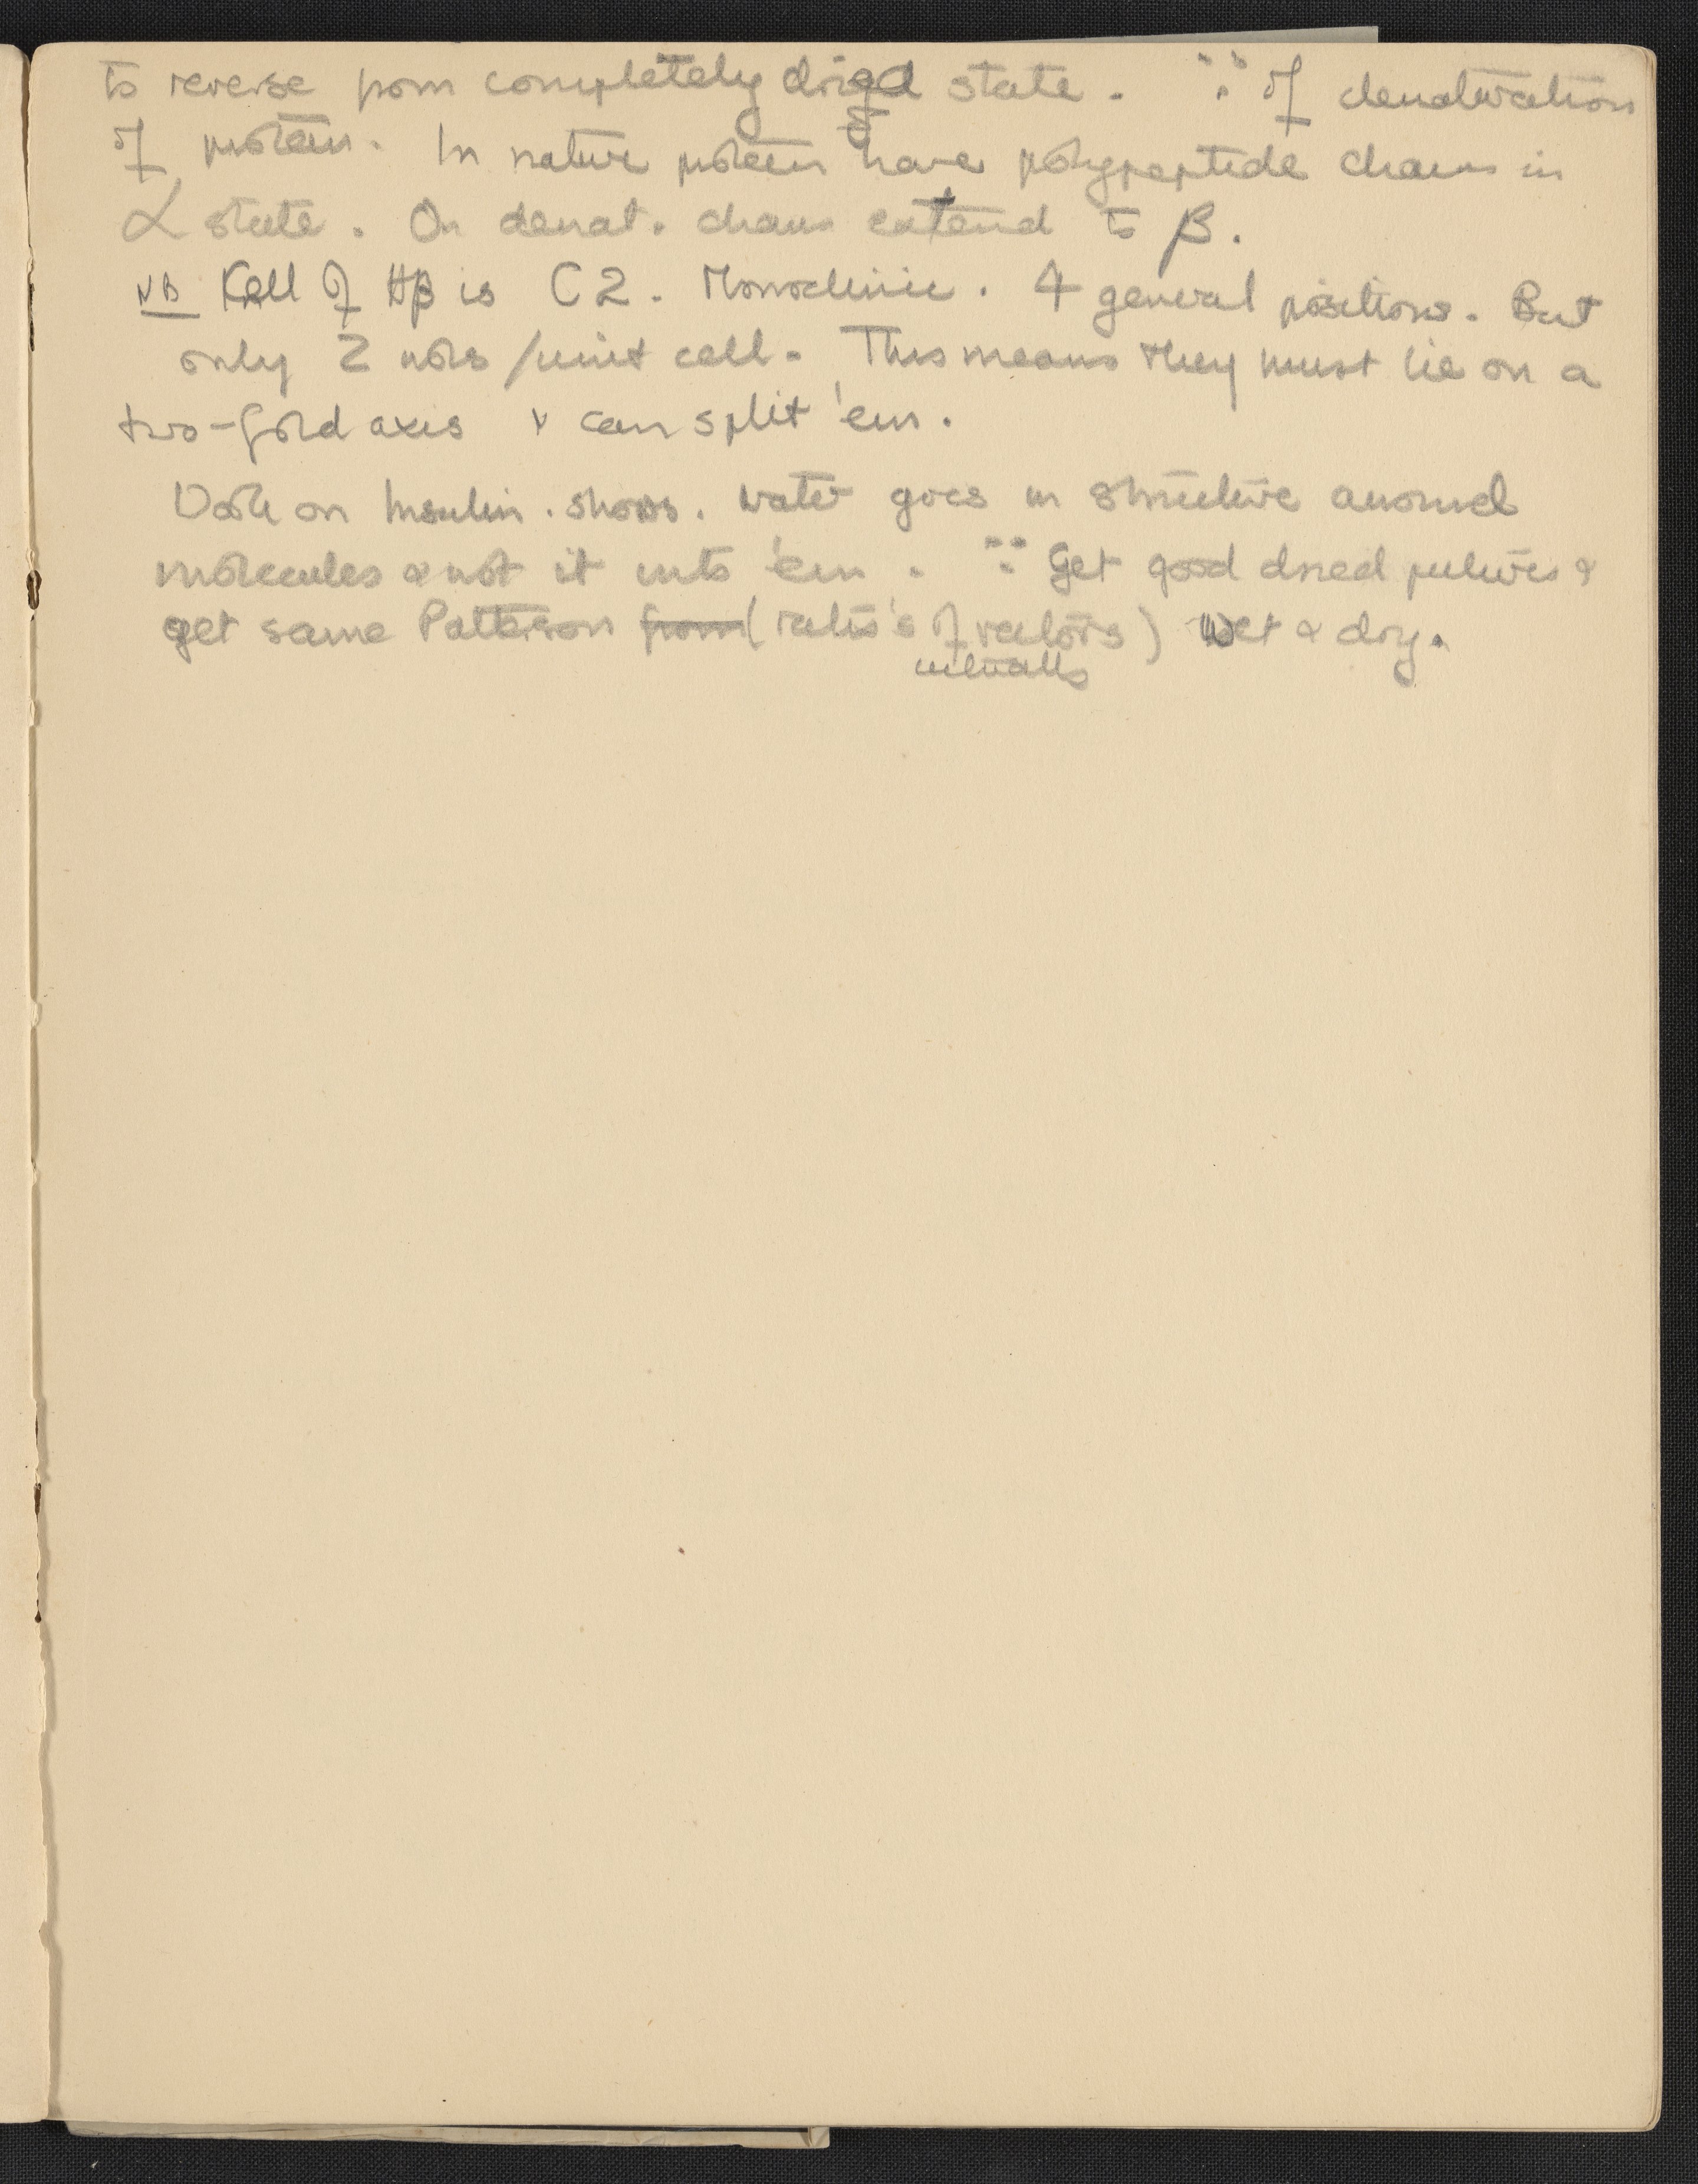 to reverse from completely dried state. ∵ of denaturation
of protein. In nature protein have polypeptide chains in
α state. On denat. chains extend to β.
NB Kell of Hβ is C2. Monoclinic. 4 general positions. But
only 2 mols/unit cell. This means they must lie on a
two-fold axis & can split 'em.
Work on Insulin. shows. water goes in structure around
molecules & not it into 'em. ∵ Get good dried pictures &
get same Patterson from (ratio's of vectors) wet & dry.
intervals